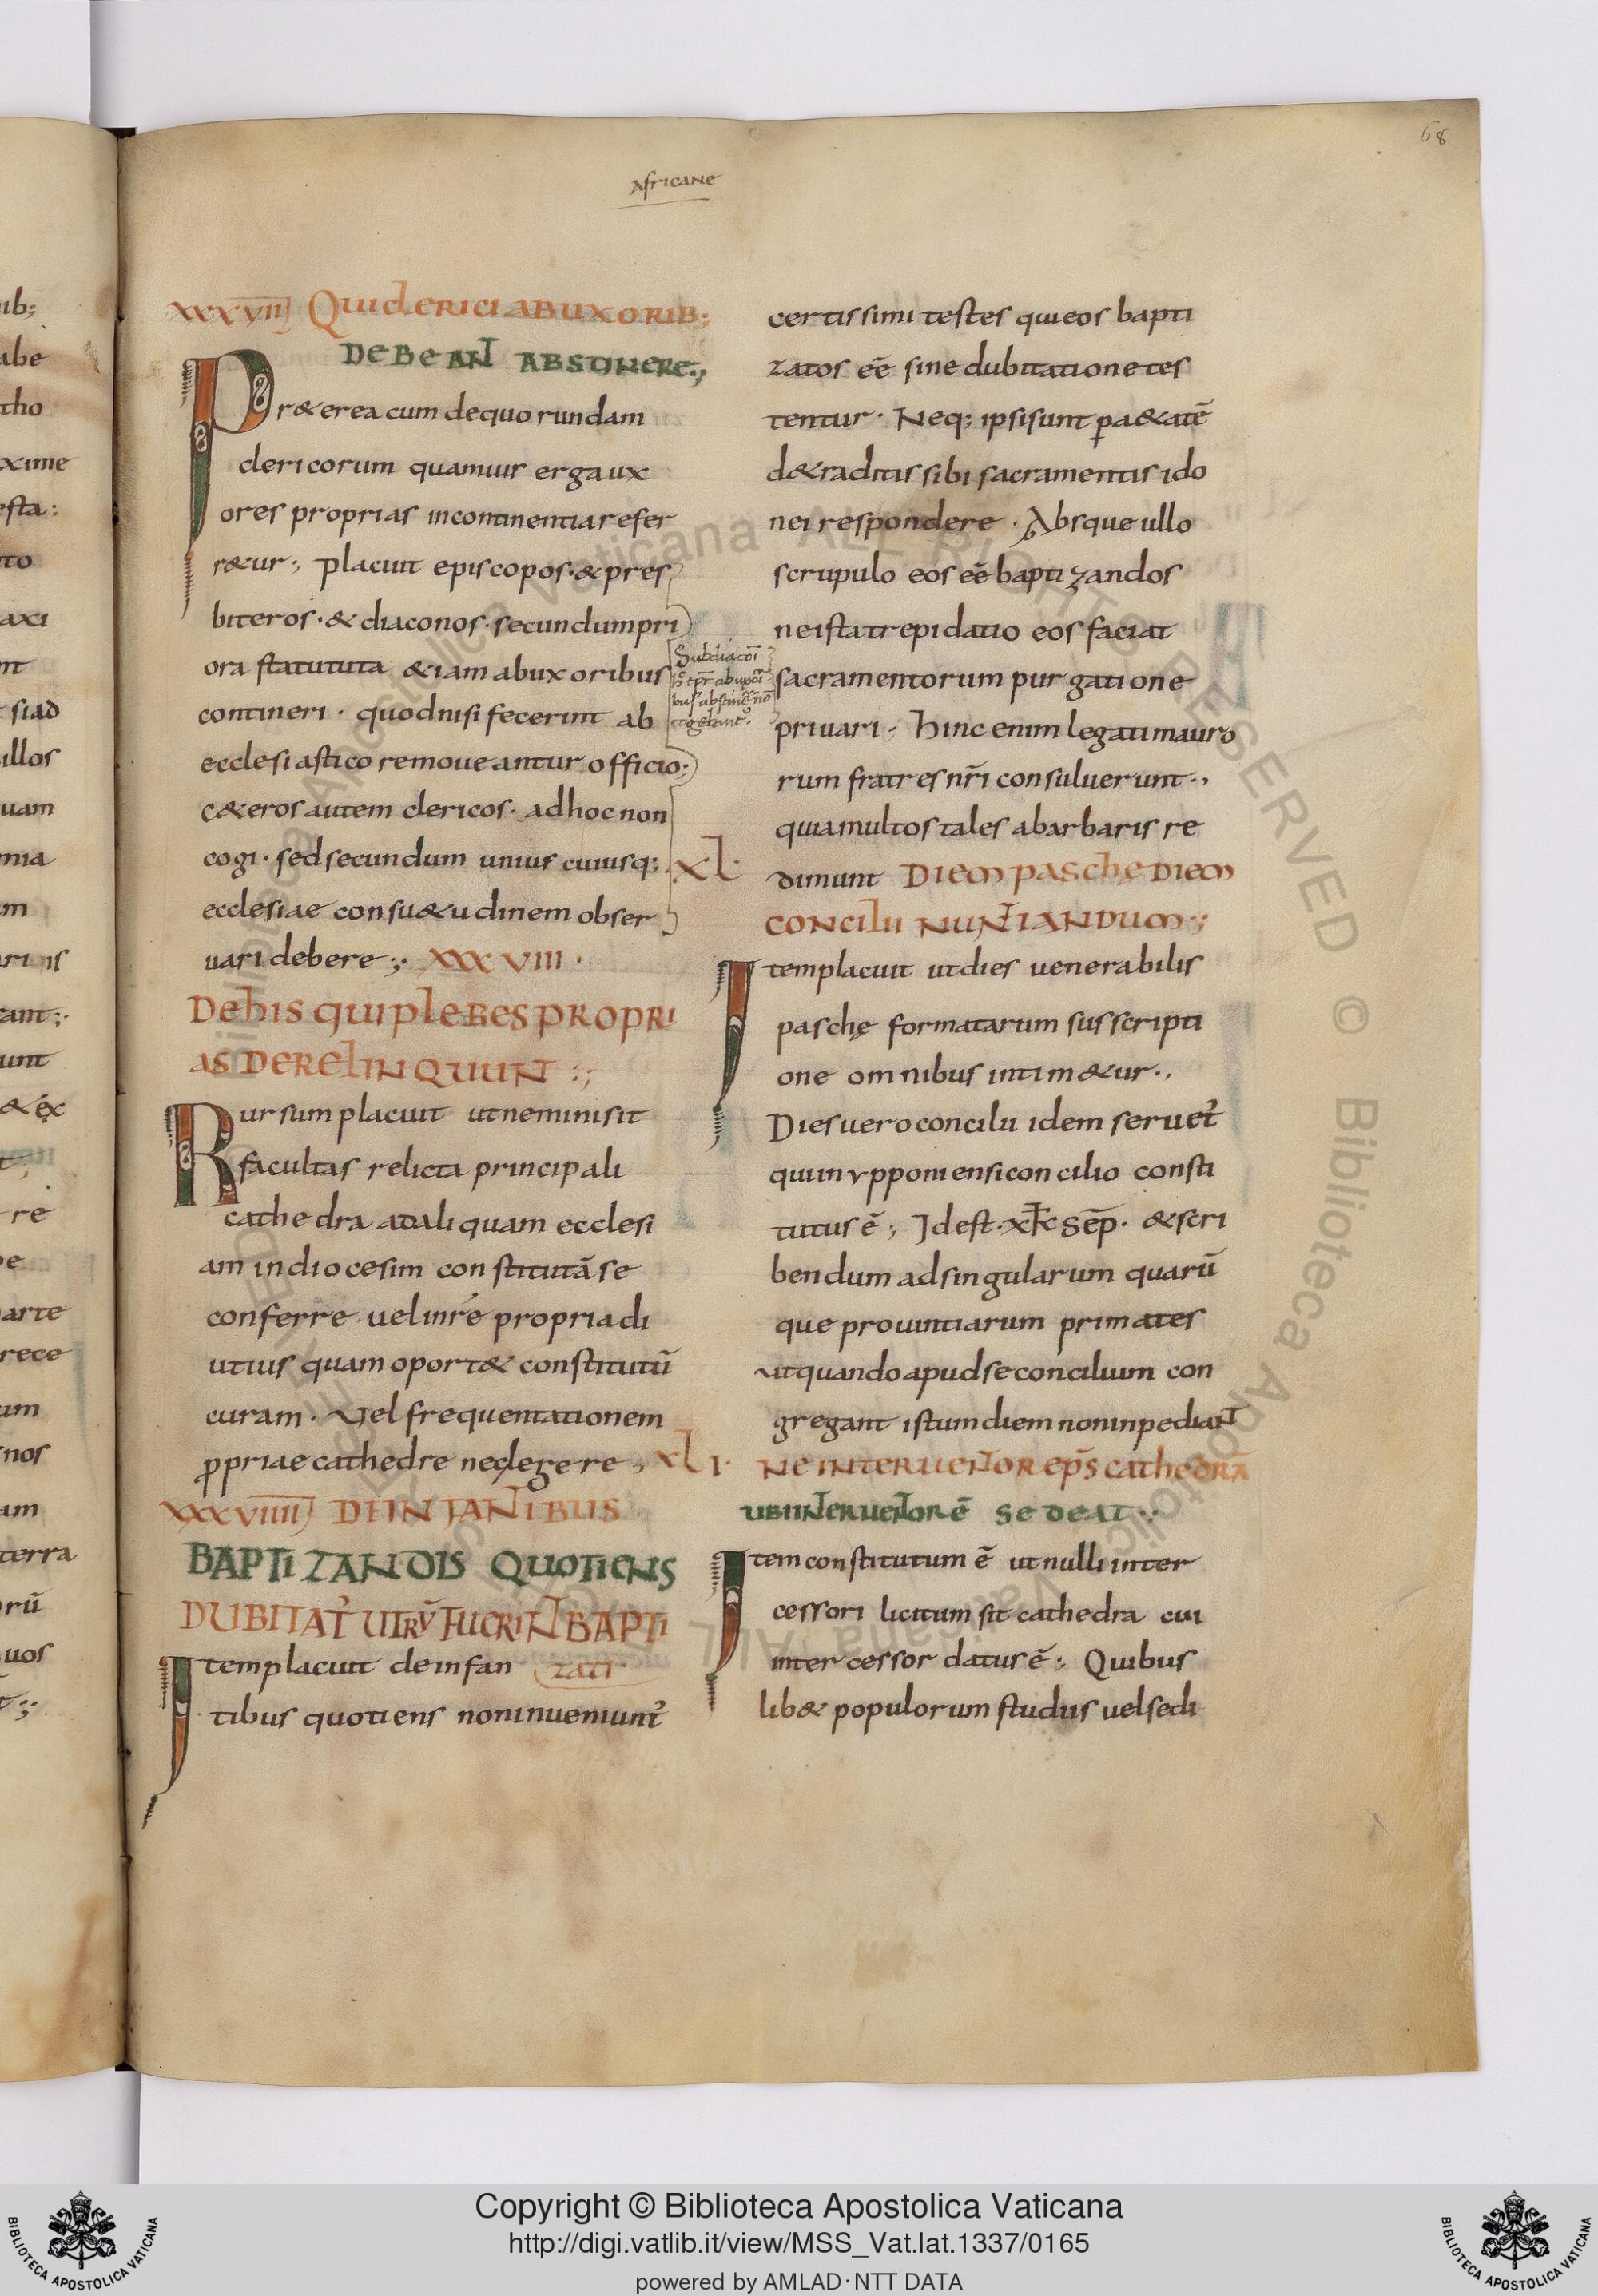 68
Africane
XXXVII Quid clerici ab uxorib;
debeant abstinere.,
Pr&erea cum de quorundam
clericorum quamuis erga ux
ores proprias incontinentia refer
r&ur ., Placuit episcopos · & pres
biteros · & diaconos · secundum pri
ora statututa & iam ab uxoribus
contineri · quod nisi fecerint ab
ecclesiastico remoueantur officio ·,
C&eros autem clericos · ad hoc non
cogi · sed secundum unius cuiusq;
ecclesiae consu&udinem obser
uari debere ;, XXXVIII ·
De his qui plebes propri
as derelinquun :;
Rursum placuit ut nemini sit
facultas relicta principali
cathedra ad aliquam ecclesi
am in diocesim constitutā se
conferre · uel in re propria di
utius quam oport& constitutū
curam · Vel frequentationem
ꝓpriae cathedre neclegere ,
XXXVIIII DE INFANTIBUS
BAPTIZANDIS QUOTIENS
DUBITAT̉ UTRŪ FUERINT BAPTI
Item placuit de infan zati
tibus quotiens non inueniunt̉
Subdiacoī
bus abstinē nō
cogebant̉
certissimi testes qui eos bapti
zatos eē sine dubitatione tes
tentur · Neq; ipsi sunt ꝑ a&atē
de traditis sibi sacramentis ido
nei respondere · Absque ullo
scrupulo eos eē baptizandos
ne ista trepidatio eos faciat
sacramentorum purgatione
priuari · Hinc enim legati mauro
rum fratres nr̄i consuluerunt .,
quia multos tales a barbaris re
XL · dimunt Diem paschę diem
concilii nuntiandum ·;
Item placuit ut dies uenerabilis
paschę formatarum suscripti
one omnibus intim&ur .,
Dies uero concilii idem seruet̉
qui in ypponiensi concilio consti
tutus ē ; Idest · xk̄ Sēp · & scri
bendum ad singularum quarū
que prouintiarum primates
ut quando apud se concilium con
gregant istum diem non inpediant
XLI · Ne interuentor ep̄s cathedrā
ubi interuentor ē sedeat ·:·
Item constitutum ē ut nulli inter
cessori licitum sit cathedra cui
intercessor datus ē ; Quibus
lib& populorum studiis uel sedi
Copyright © Biblioteca Apostolica Vaticana
http://digi.vatlib.it/view/MSS_Vat.lat.1337/0165
powered by AMLAD·NTT DATA